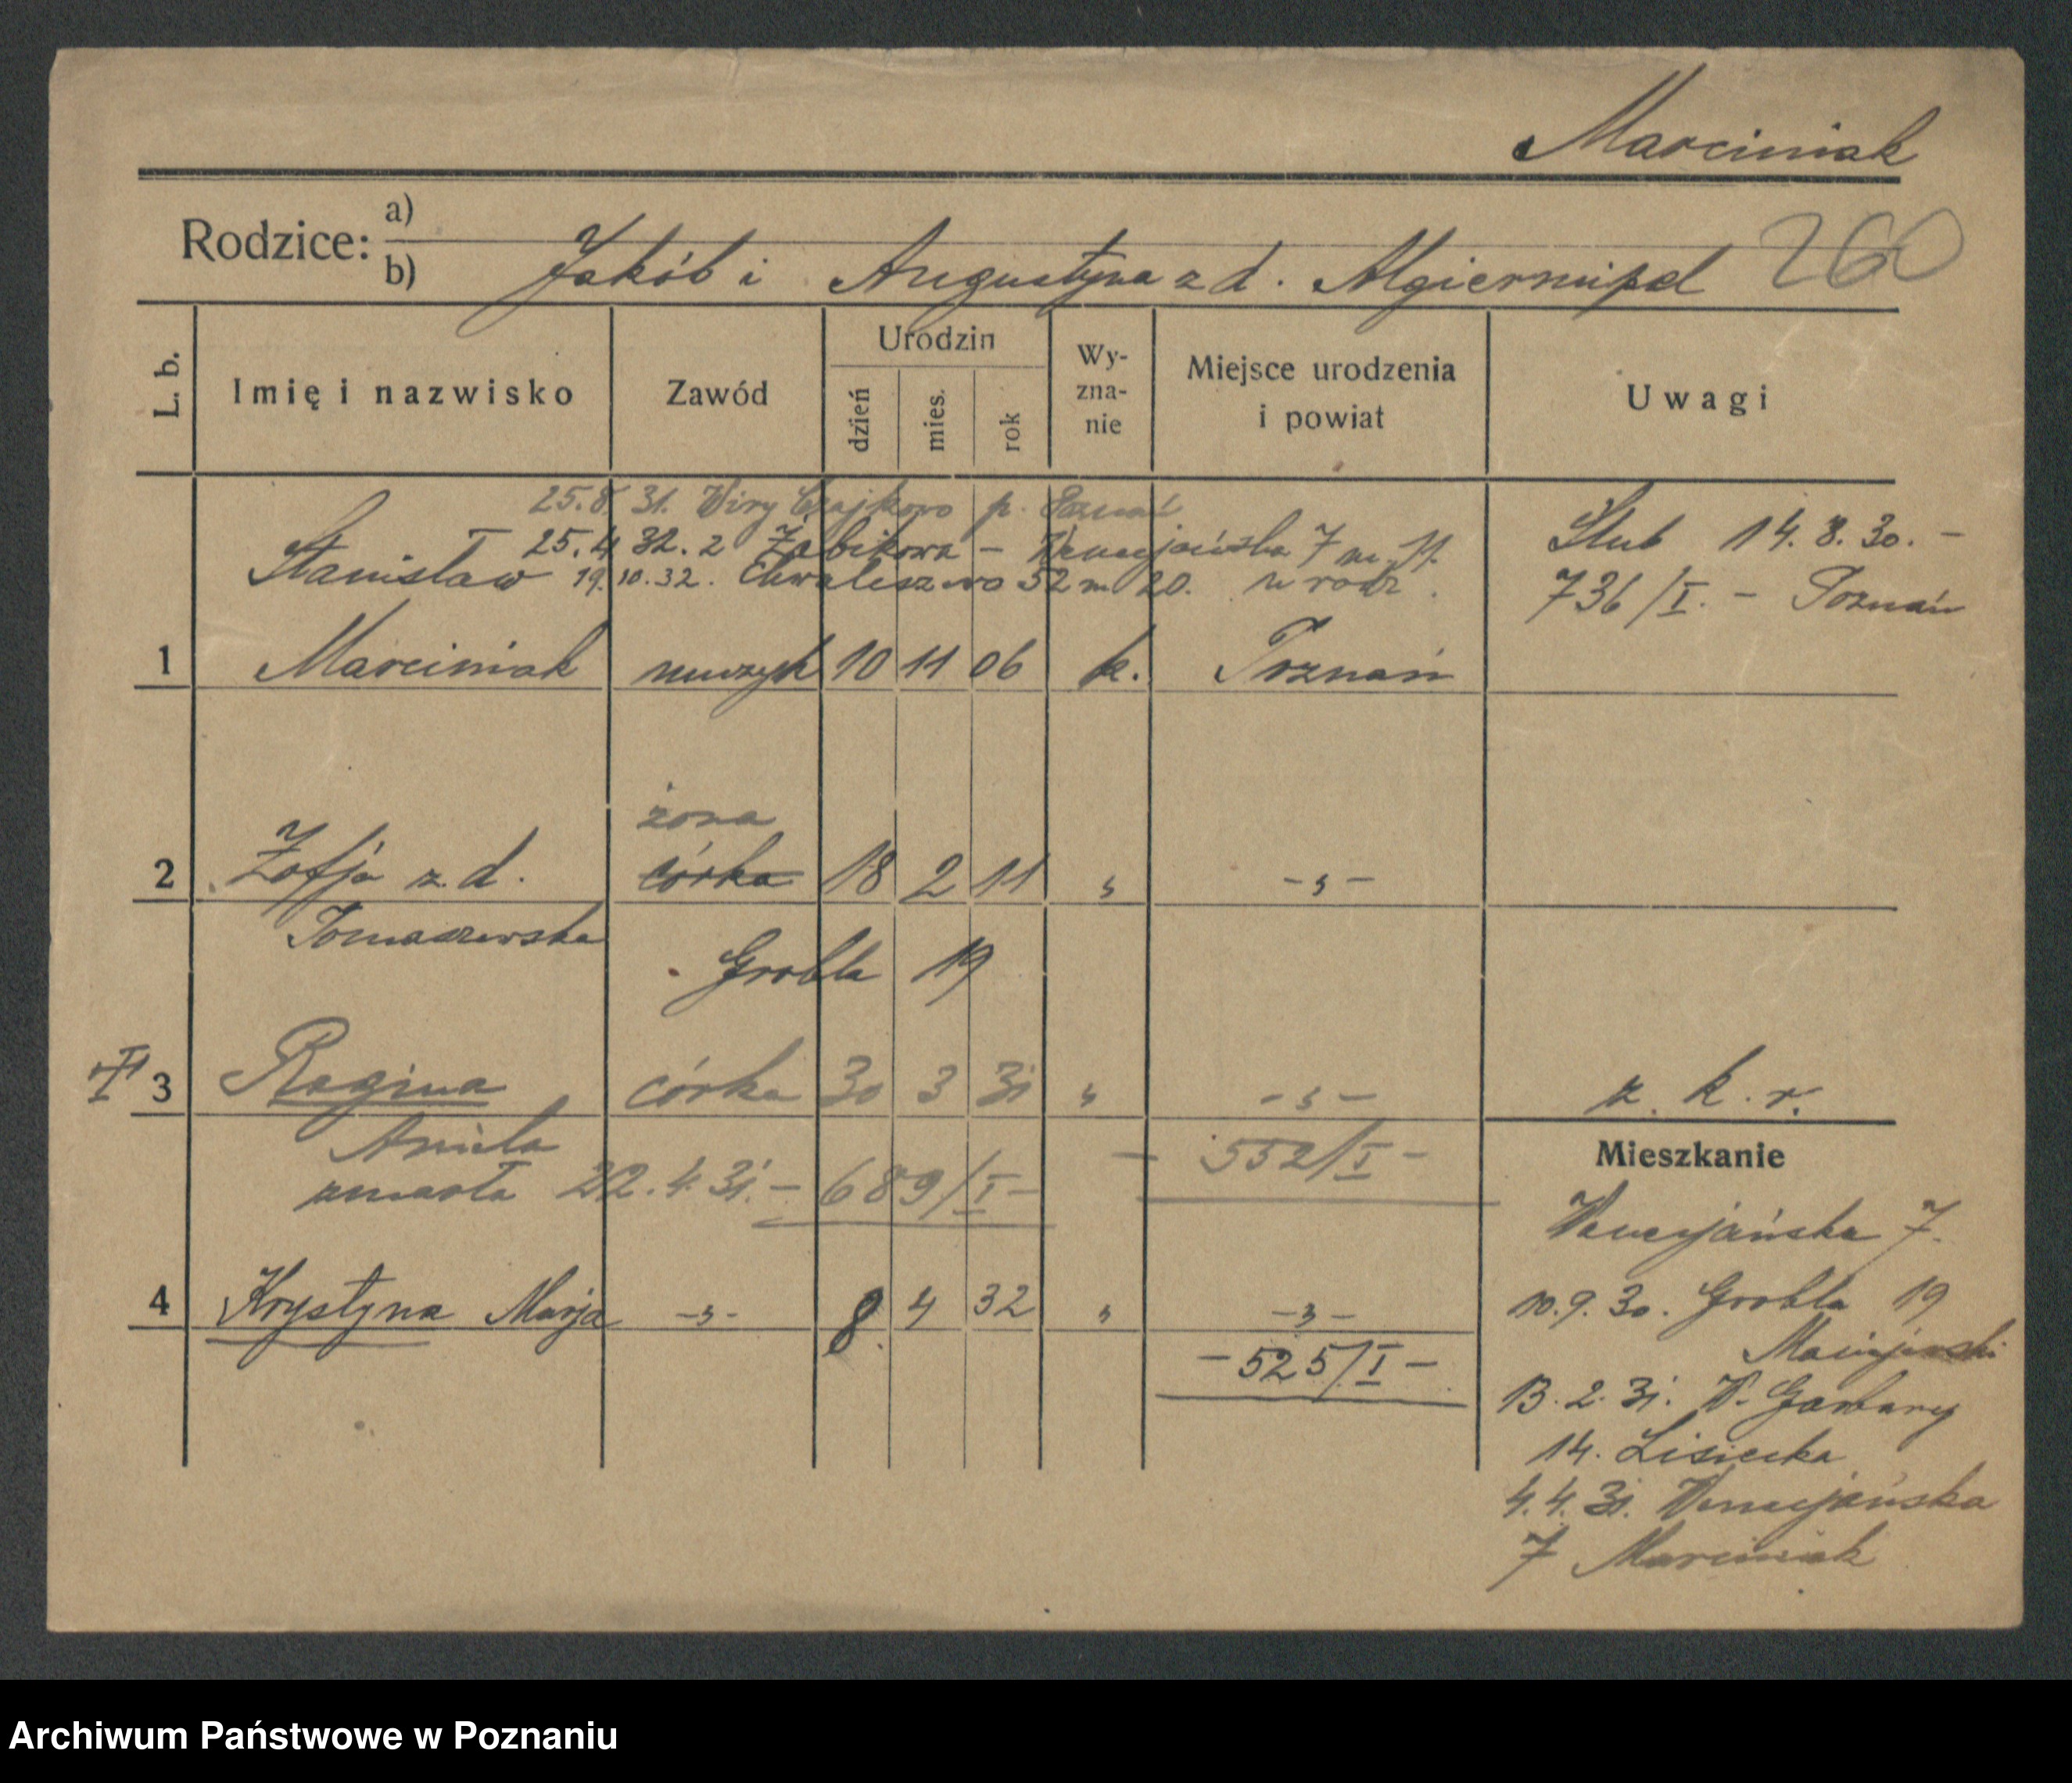 Marciniak
Rodzice: a)
b) Jakób i Augustyna z d.
260
L. b.
Imię i nazwisko
Zawód
Urodzin
dzień
mies.
rok
Wy-
zna-
nie
Miejsce urodzenia
i powiat
Uwagi
25.8. 31. Wiry Czajkowo p. Poznań
25.4 32. z Żabikowa – Wenecjańska 7 m. 11.
Stanisław 19.10.32. Chwaliszewo 52 m 20. u rodz.
Ślub 14.8.30. –
736/I. – Poznań
1 Marciniak muzyk 10 11 06 k. Poznań
żona
2 Zofja z d. córka 18 2 11 " – " –
Tomaszewska
Grobla 19
3 Regina córka 30 3 31 " – " – z. k. r.
Aniela – 552/I –
zmarła 22.4.31. – 689/I –
4 Krystyna Marja – " – 8. 4 32 " – " –
– 525/I –
Mieszkanie
Wenecjańska 7.
10.9.30. Grobla 19
Maciejewski
13.2.31. W. Garbary
14. Lisiecka
4.4.31. Wenecjańska
7 Marciniak
Archiwum Państwowe w Poznaniu